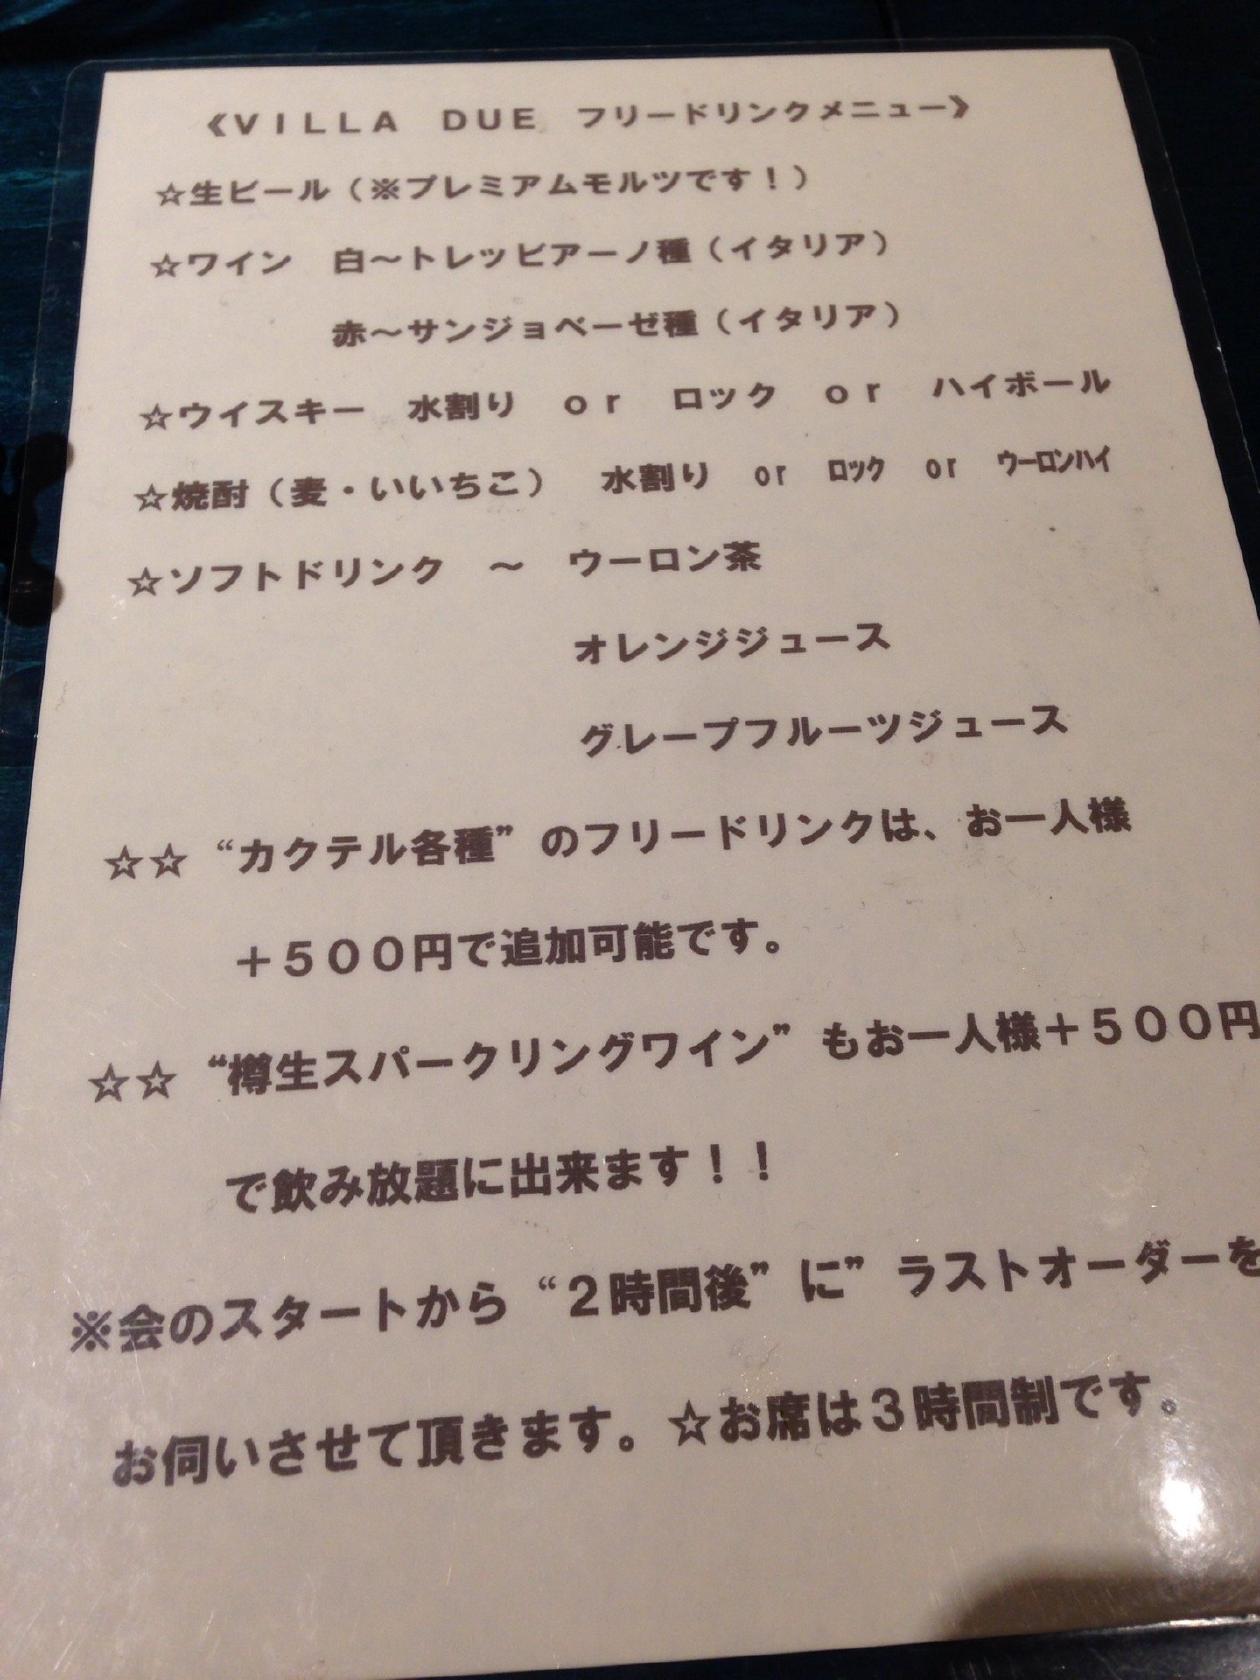 《ＶＩＬＬＡ　ＤＵＥ　フリードリンクメニュー》
☆生ビール（※プレミアムモルツです！）
☆ワイン　白～トレッビアーノ種（イタリア）
赤～サンジョベーゼ種（イタリア）
☆ウイスキー　水割り　ｏｒ　ロック　ｏｒ　ハイボール
☆焼酎（麦・いいちこ）　水割り　or　ﾛｯｸ　or　ｳｰﾛﾝﾊｲ
☆ソフトドリンク　～　ウーロン茶
オレンジジュース
グレープフルーツジュース
☆☆“カクテル各種”のフリードリンクは、お一人様
＋５００円で追加可能です。
☆☆“樽生スパークリングワイン”もお一人様＋５００円
で飲み放題に出来ます！！
※会のスタートから“２時間後”に”ラストオーダーを
お伺いさせて頂きます。☆お席は３時間制です。